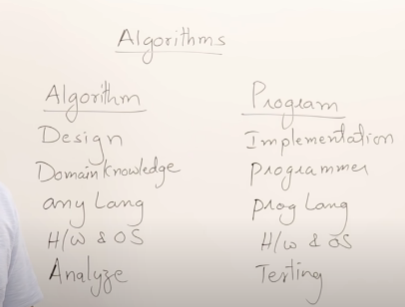 Algorithms
Algorithm
Design
Domain Knowledge
any Lang
H/W & OS
Analyze
Program
Implementation
Programmer
prog Lang
H/W & OS
Testing